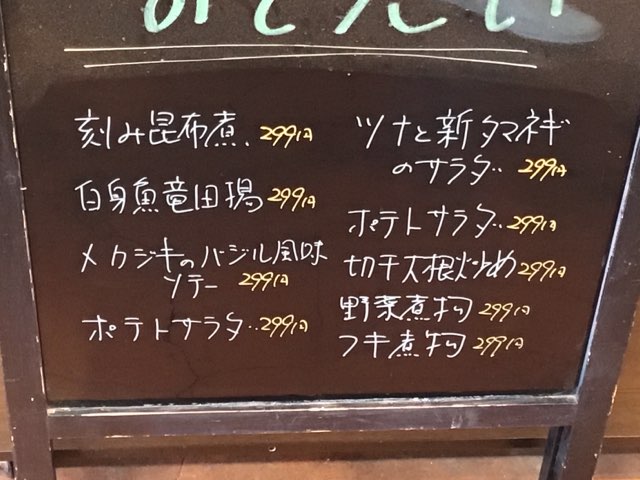 刻み昆布煮、299円
白身魚竜田揚299円
メカジキのバジル風味
ソテー 299円
ポテトサラダ‥299円
ツナと新タマネギ
のサラダ‥299円
ポテトサラダ‥299円
切干大根炒め299円
野菜煮物 299円
フキ煮物 299円